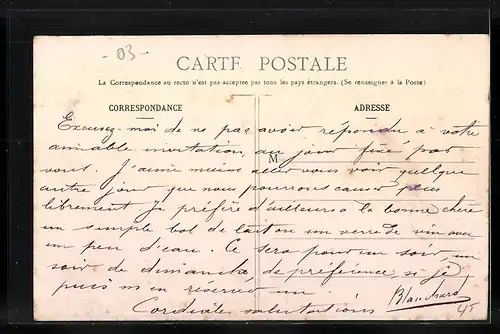 - 03 -
CARTE POSTALE
La Correspondance au recto n'est pas acceptée par tous les pays étrangers. (Se renseigner à la Poste)
CORRESPONDANCE
ADRESSE
M
Excusez-moi de ne pas avoir répondu à votre
aimable invitation, au jour fixé par
vous. J'aime mieux aller vous voir quelque
autre jour que nous pourrons causer plus
librement. Je préfère d'ailleurs à la bonne chère
un simple bol de lait ou un verre de vin avec
un peu d'eau. Ce sera pour un soir, un
soir de dimanche, de préférence, si je
puis m'en réserver un.
Cordiales salutations
Blanchard
45